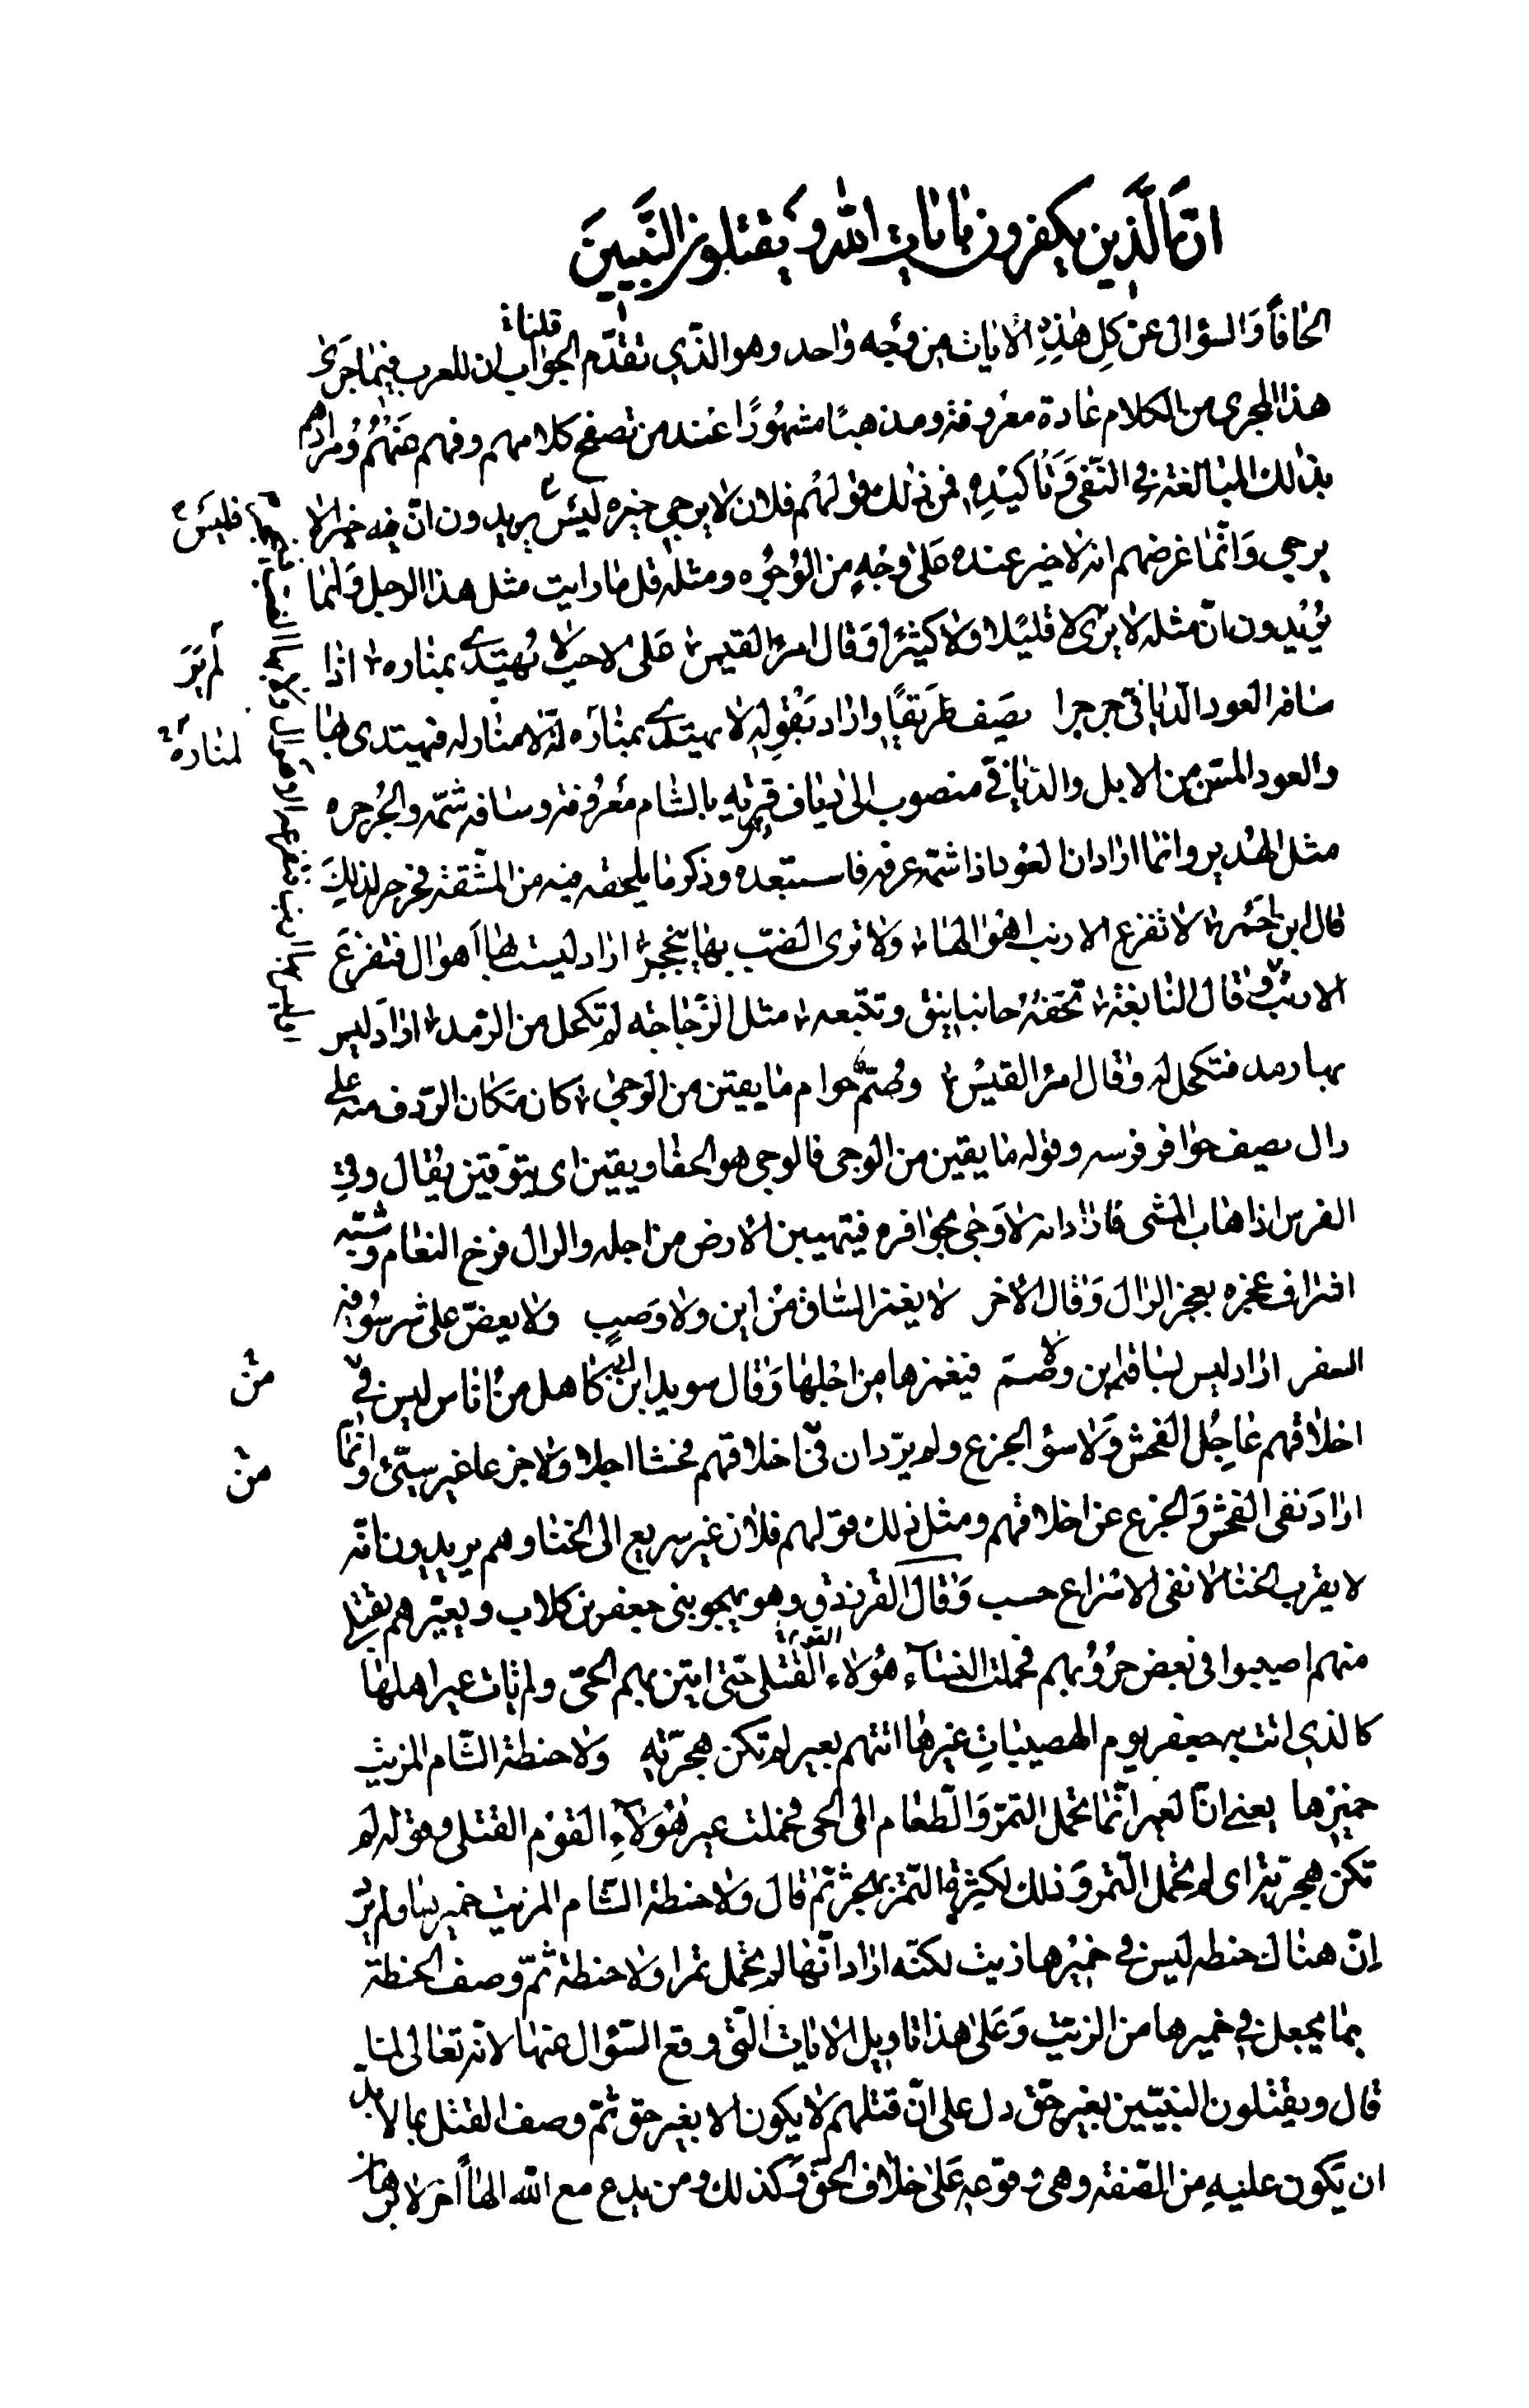 انّ الَّذين يكفرون باٰيات اللّٰه وَيقتلون النَّبيينَ
الحافاً وَالسؤال عَن كلِ هٰذِهِ الاٰيات مِن وَجه واحد وهو الّذي تقدّم الجوٰاب قلنا انّ للعرب فيمٰا جَرىٰ
هذا المجرى من الكلام عٰادة معرُوفة ومذهبًا مشهُورًا عند من تصفّح كلامهم وفهم عَنهُمْ وَمرادهم
بذٰلك المبٰالغة في النّفي وَتأكيْدِه فمن ذٰلك قولهُم فلان لا يرجى خيره ليس يريدون انّ فيه خيرا لا
يرجى وَانّمٰا غرضهم انه لا خير عنده عَلىٰ وجْهٍ من الوُجُوه ومثله قلّ مٰا رايت مثل هذا الرجل وَانمٰا
يُريْدون انّ مثله لا يرى لا قليْلا ولا كثيْرًا وَقال امرؤ القيس عَلى لاحب لا يُهتدى بمنٰاره اذٰا
سٰافه العود الدّيٰافيّ جرجرا يصَف طَريقًا وارٰاد بقْولِه لا يهتدى بمنٰاره انّه لا منٰار له فيهتدى بهٰا
والعود المسنّ من الابل والديٰافيّ منصوب الى ديٰاف قرية بالشٰام مَعرُوفة وسٰافه شمّه والجُرجره
مثل الهْدير وانمٰا ارٰاد ان العوْد اذا شمّه عرفه فاستبعده وذكر مٰا يلحقه فيه من المشّقة فجرجر لذلِكَ
قال ابن احْمر لا تفزع الارنب اهوٰالهٰا وَلا ترى الضبّ بها ينجحر ارٰاد ليست بهٰا اَهوال فتفزعَ
الارنب وَقٰال النٰابغة تحفّهُ جانبا نيق وتتبعه مثل الزّجٰاجة لم تكحل من الرّمد ارٰادَ ليس
بها رمد فتكحل له وَقٰال امرؤ القيسْ وصمّ حوام مٰا يقين من الوجىٰ كان مَكان الرّدف منه على
رال يصيف حوٰافر فرسه وقوله مٰا يقين من الوجى فالوجى هو الحفٰا ويقين اى يتوَقين يُقٰال وقى
الفرس اذا هٰاب المشى فارٰاد انه لا وَجى بحوٰافره فيتهيبن الارض من اجله والرال فرخ النعٰام وشبّه
اشراف عجزه بعجز الرٰال وَقٰال الاٰخر لا يغمز السّٰاق مْن اين ولا وَصبٍ ولا يعضّ على شرسُوفه
السفر ارٰاد ليس بسٰاقه اين ولا وصبَ فيغمزها مِن اجْلهٰا وَقٰال سويد ابن ابى كٰاهل منْ اُنٰاس ليس في
اخلاٰقهم عٰاجِل الفحش وَلا سؤ الجزع ولم يرّد ان فى اخلاقهم فحشا اجلا ولا جزعا غير سيّئ وانمّٰا
ارٰادَ نفى الفحش وَالجزع عن اخلاقهم ومثل ذٰلك قولهم فلان غير سريع الى الخنٰا وهم يريدون انّه
لا يقرب الخنٰا لا نفى الاسْرٰاع حسب وَقٰال الفرزدق وهو يهجو بنى جعفر بن كلاب ويعيّرهم بقتلى
منهم اصيبوا فى بعض حرُوُبهم فحملت النسٰاۤء هٰؤلاء القوم القتلى حتىٰ اتين بهم الحىّ ولم تات عير اهلهٰا
كالذي اتت به جعفر يوم الهضيبٰاتِ عيرهٰا اتتهم بعير لم تكن هجَرّيّةٍ وَلا حنطة الشّام المزيت
خميرها يعنى انّ العير انّما تحمل التمرّ وَالّطعٰام الى الحى فحملت عير هٰؤلاۤءِ القوْم القتلى وقوله لم
تكن هجريّة اى لم تحمل الّتمر وَذلك لكثرة التمر بهجر ثمّ قٰالَ ولا حنطة الشّام المزيت خميرها ولم يُرد
إنّ هنٰاك حنطه ليس في خميْرها زيت لكنّه ارٰاد انّهٰا لم تحمل تمرا ولا حنطة ثمّ وصف الحنطة
بمٰا يجعل في خميرها من الزيْت وَعَلىٰ هذا تاويل الاٰيات الّتى وقع السّؤال عنهٰا لانه تعٰالى لمّا
قٰال ويقتلون النبيّين بغير حقّ دل على انّ قتلهم لا يكون الا بغير حق ثمّ وصف القتل بما لا بدّ
ان يَكون عليهِ من الصّفة وهى وقوعه عَلىٰ خلاف الحقّ وَكذلك ومن يدع مع اللّٰه الهاً اٰخر لا برهان
فليَس
لم نرَ
لمنارهٔ
من
من